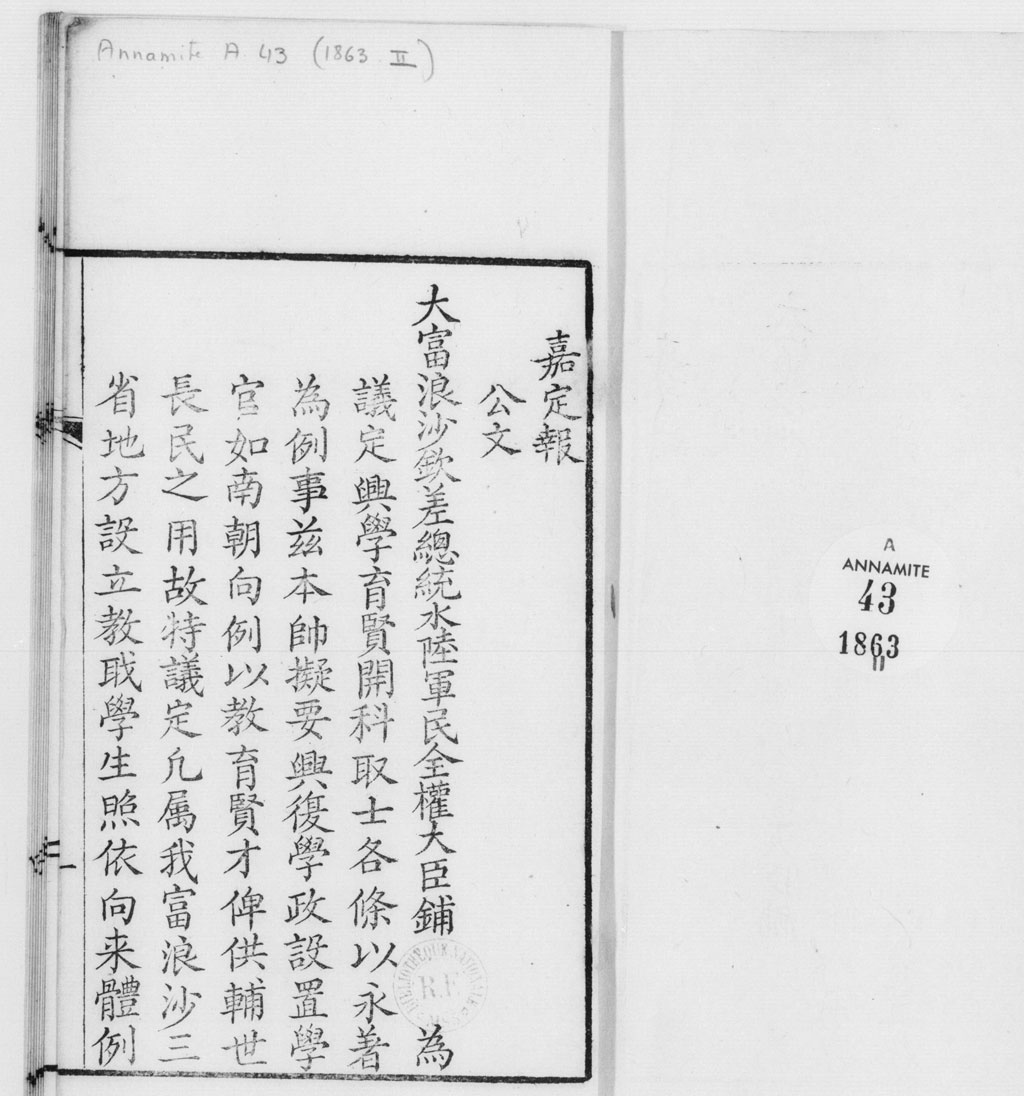 Annamite A 43 (1863 II)
嘉定報
公文
大富浪沙欽差總統水陸軍民全權大臣鋪 為
議定興學育賢開科取士各條以永著
為例事兹本帥擬要興復學政設置學
官如南朝向例以教育賢才俾供輔世
長民之用故特議定凢属我富浪沙三
省地方設立教戢學生照依向来體例
R.F
A
ANNAMITE
43
1863
II